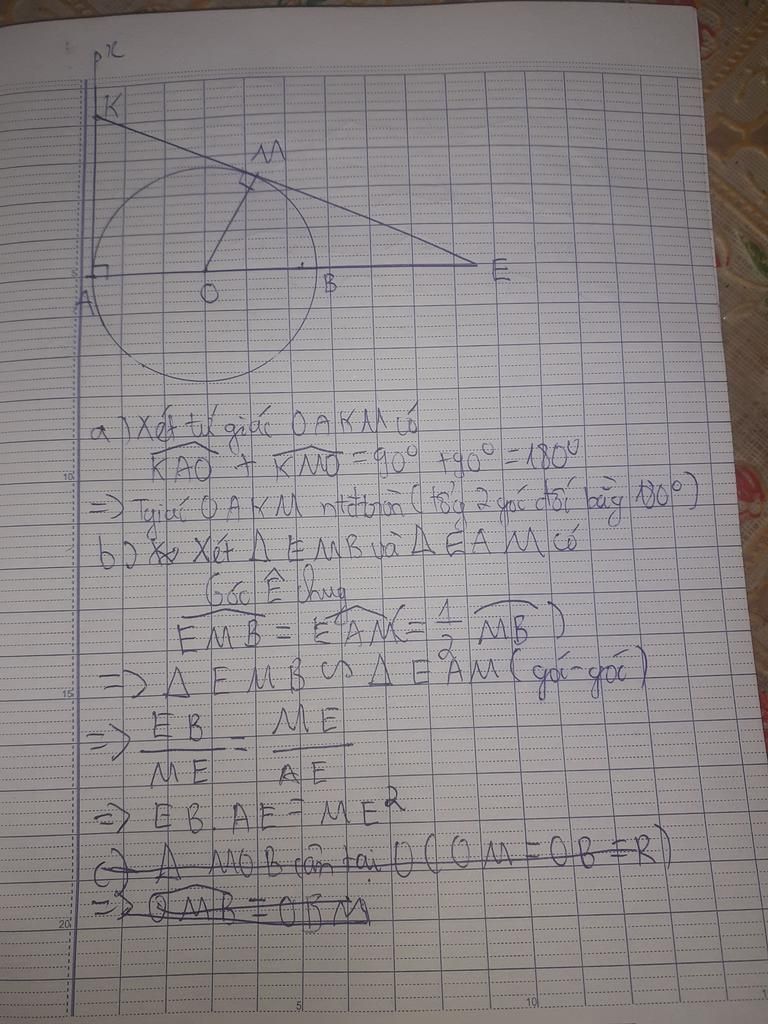 x
K
M
A
O
B
E
a) Xét tứ giác OAKM có
KAO + KMO = 90° + 90° = 180°
=> Tgiác OAKM ntđtròn (tổg 2 góc đối bằg 180°)
b) Xét Δ EMB và Δ EAM có
Góc Ê chug
EMB = EAM (= 1/2 MB)
=> Δ EMB ∽ Δ EAM (góc-góc)
=> EB/ME = ME/AE
=> EB.AE = ME²
c) Δ MOB cân tại O (OM = OB = R)
=> OMB = OBM
5
10
15
20
5
10